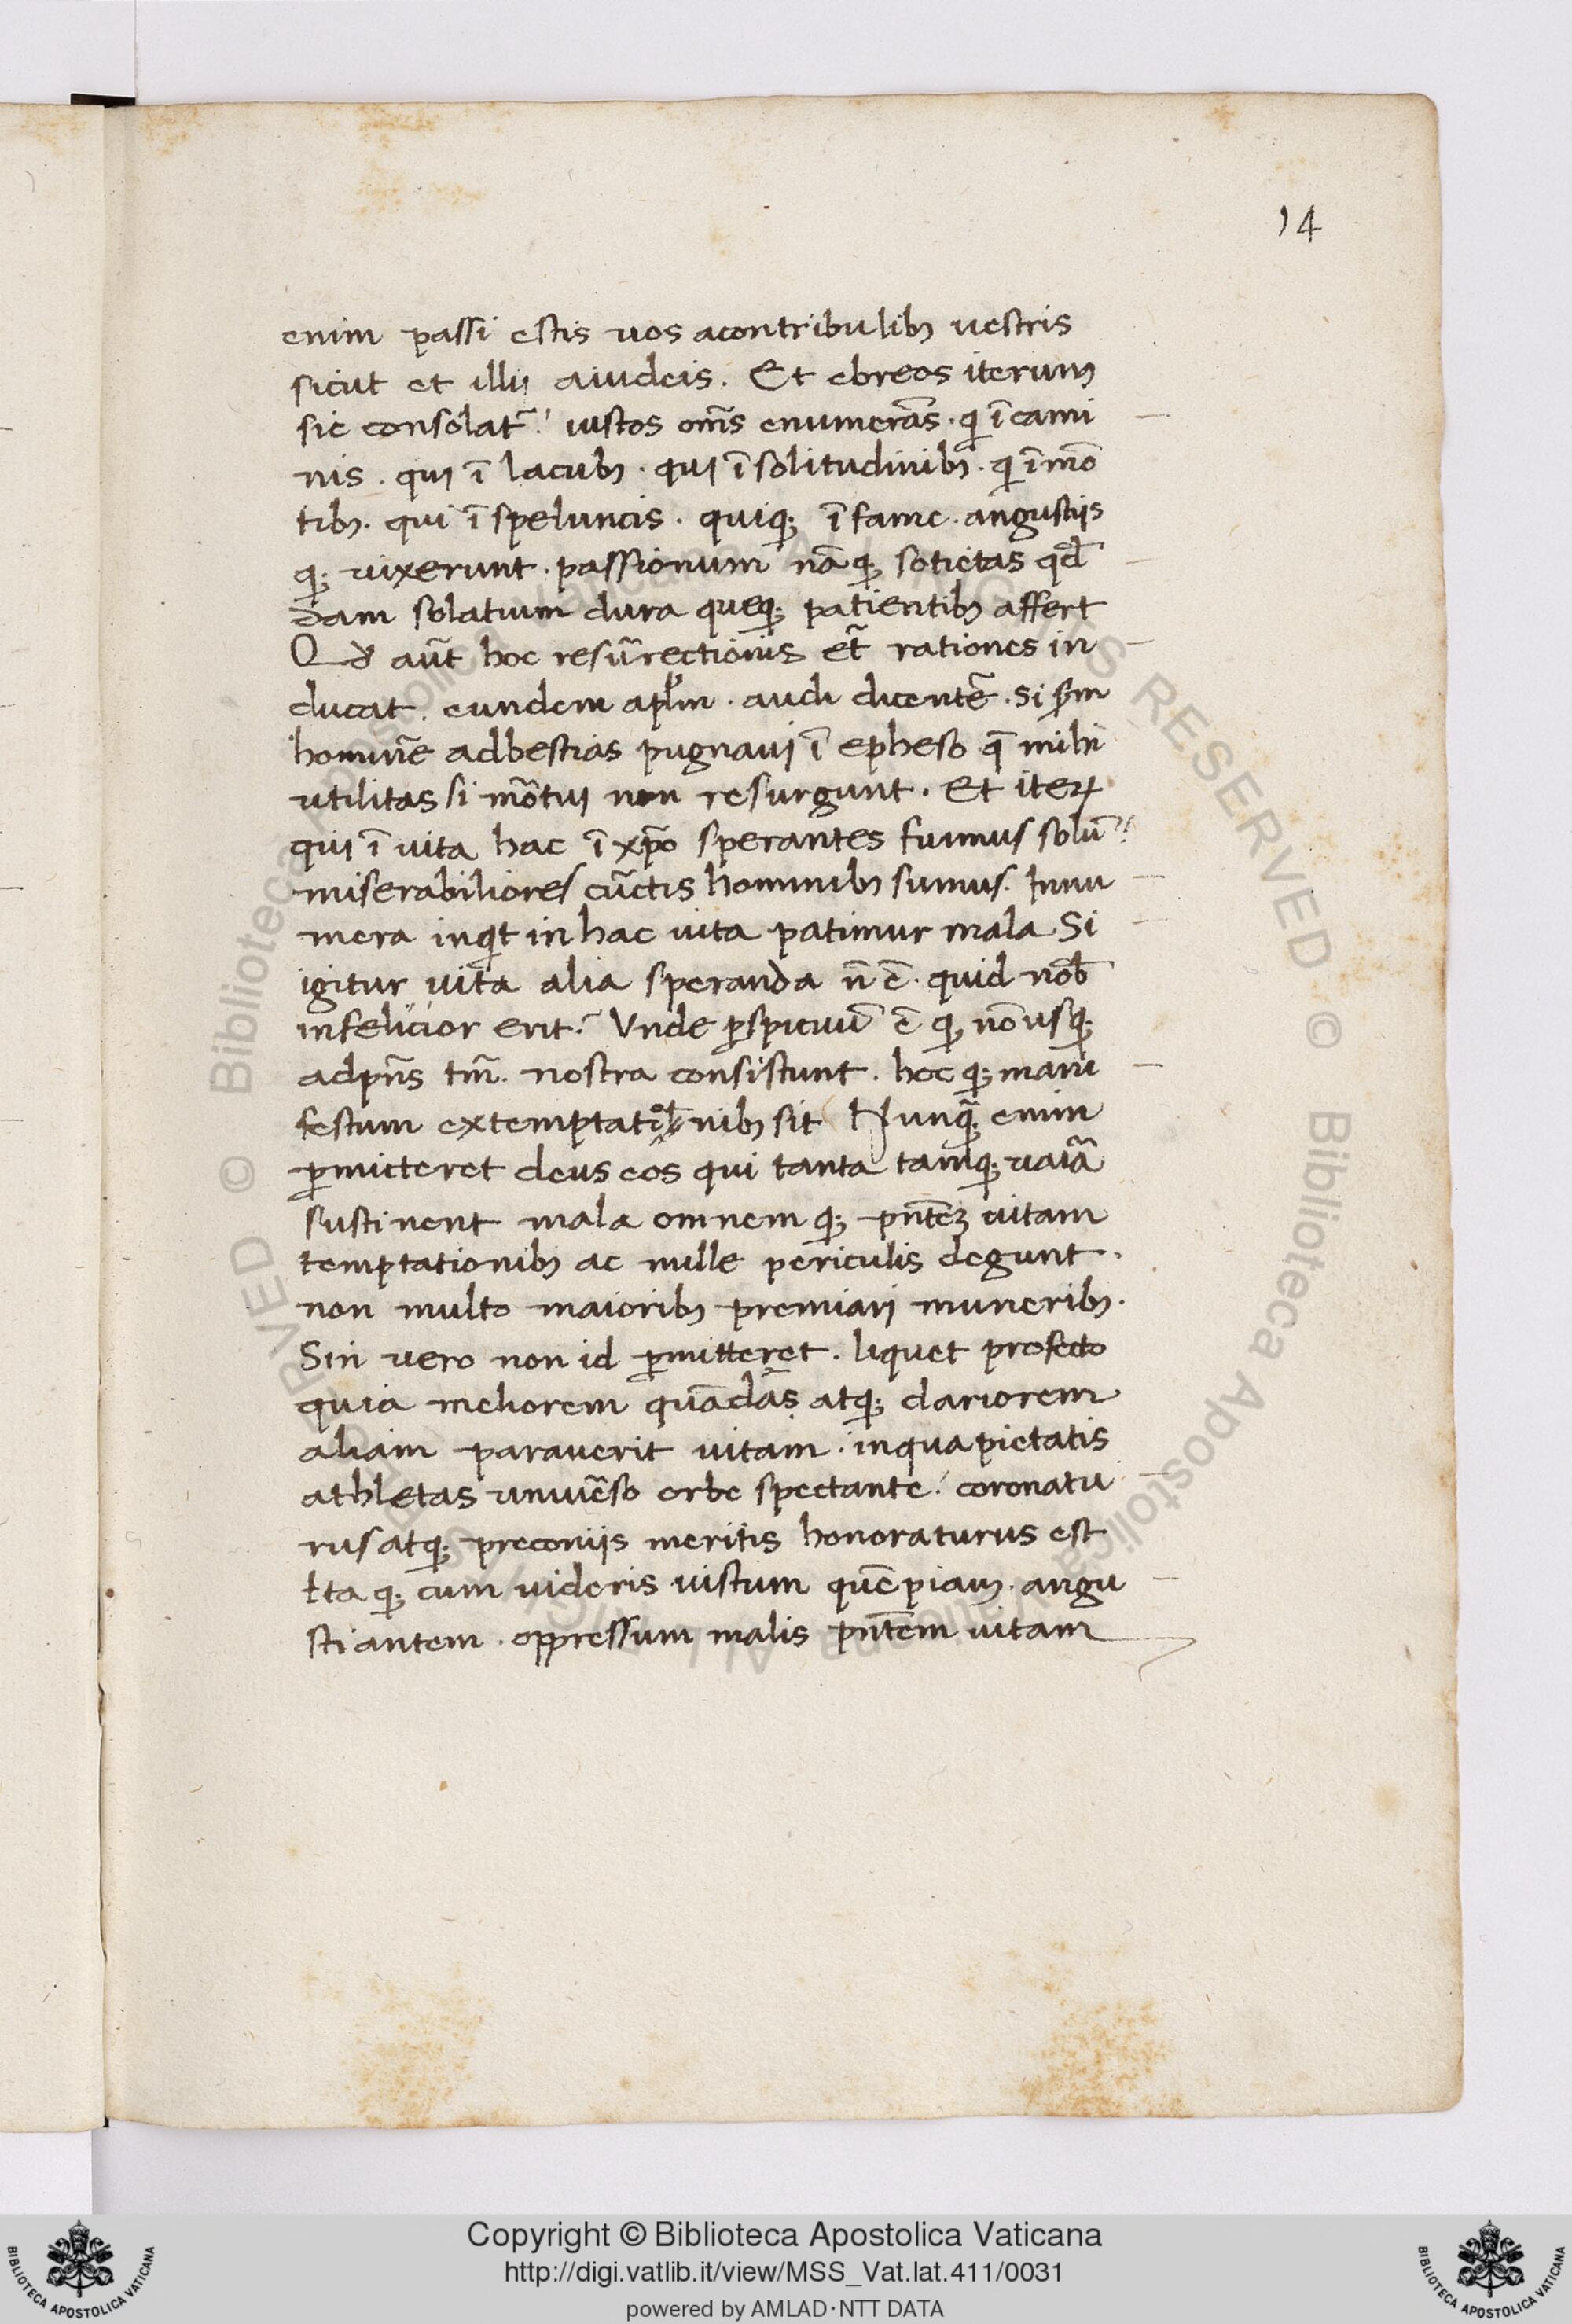 14
enim passi estis vos acontribulibꝫ vestris
sicut et illi aiudeis. Et ebreos iterum
sic consolat᷑. iustos om̄s enumerās. qͥ ī cami
nis. qui ī lacubꝫ. qui ī solitudinibꝫ. qͥ ī mō
tibꝫ. qui ī speluncis. quiqꝫ ī fame. angustijs
qꝫ vixerunt. passionum nāqꝫ sotietas qd̄
dam solatium dura queqꝫ patientibꝫ affert
Qd aūt hoc resūrectionis et̄ rationes in
ducat. eundem apl̄m. audi dicentē. si ẜm
hominē adbestias pugnavi ī epheso q̄ mihi
utilitas si mōtui non resurgunt. Et iteꝝ
qui ī vita hac ī xp̄o sperantes fuimus solū
miserabiliores cūctis hominibꝫ sumus. Innu
mera inqͥt in hac vita patimur mala Si
igitur vita alia speranda n̄ ē. quid nob̄
infelicior erit? Vnde ꝑspicuū ē qꝫ nō usqꝫ
adpn̄s tm̄. nostra consistunt. hoc qꝫ mani
festum extemptationibꝫ sit Nunqᷓꝫ enim
ꝑmicteret deus eos qui tanta tamqꝫ vaīa
sustinent mala omnem qꝫ pn̄teꝫ vitam
temptationibꝫ ac mille periculis degunt.
non multo maioribꝫ premiari muneribꝫ.
Sin vero non id ꝑmitteret. liquet profecto
quia meliorem quādās atqꝫ clariorem
aliam paraverit vitam. inqua pietatis
athletas univēso orbe spectante. coronatu
rus atqꝫ preconijs meritis honoraturus est
Ita qꝫ cum videris iustum quēpiam. angu
stiantem. oppressum malis pn̄tem vitam
Copyright © Biblioteca Apostolica Vaticana
http://digi.vatlib.it/view/MSS_Vat.lat.411/0031
powered by AMLAD·NTT DATA